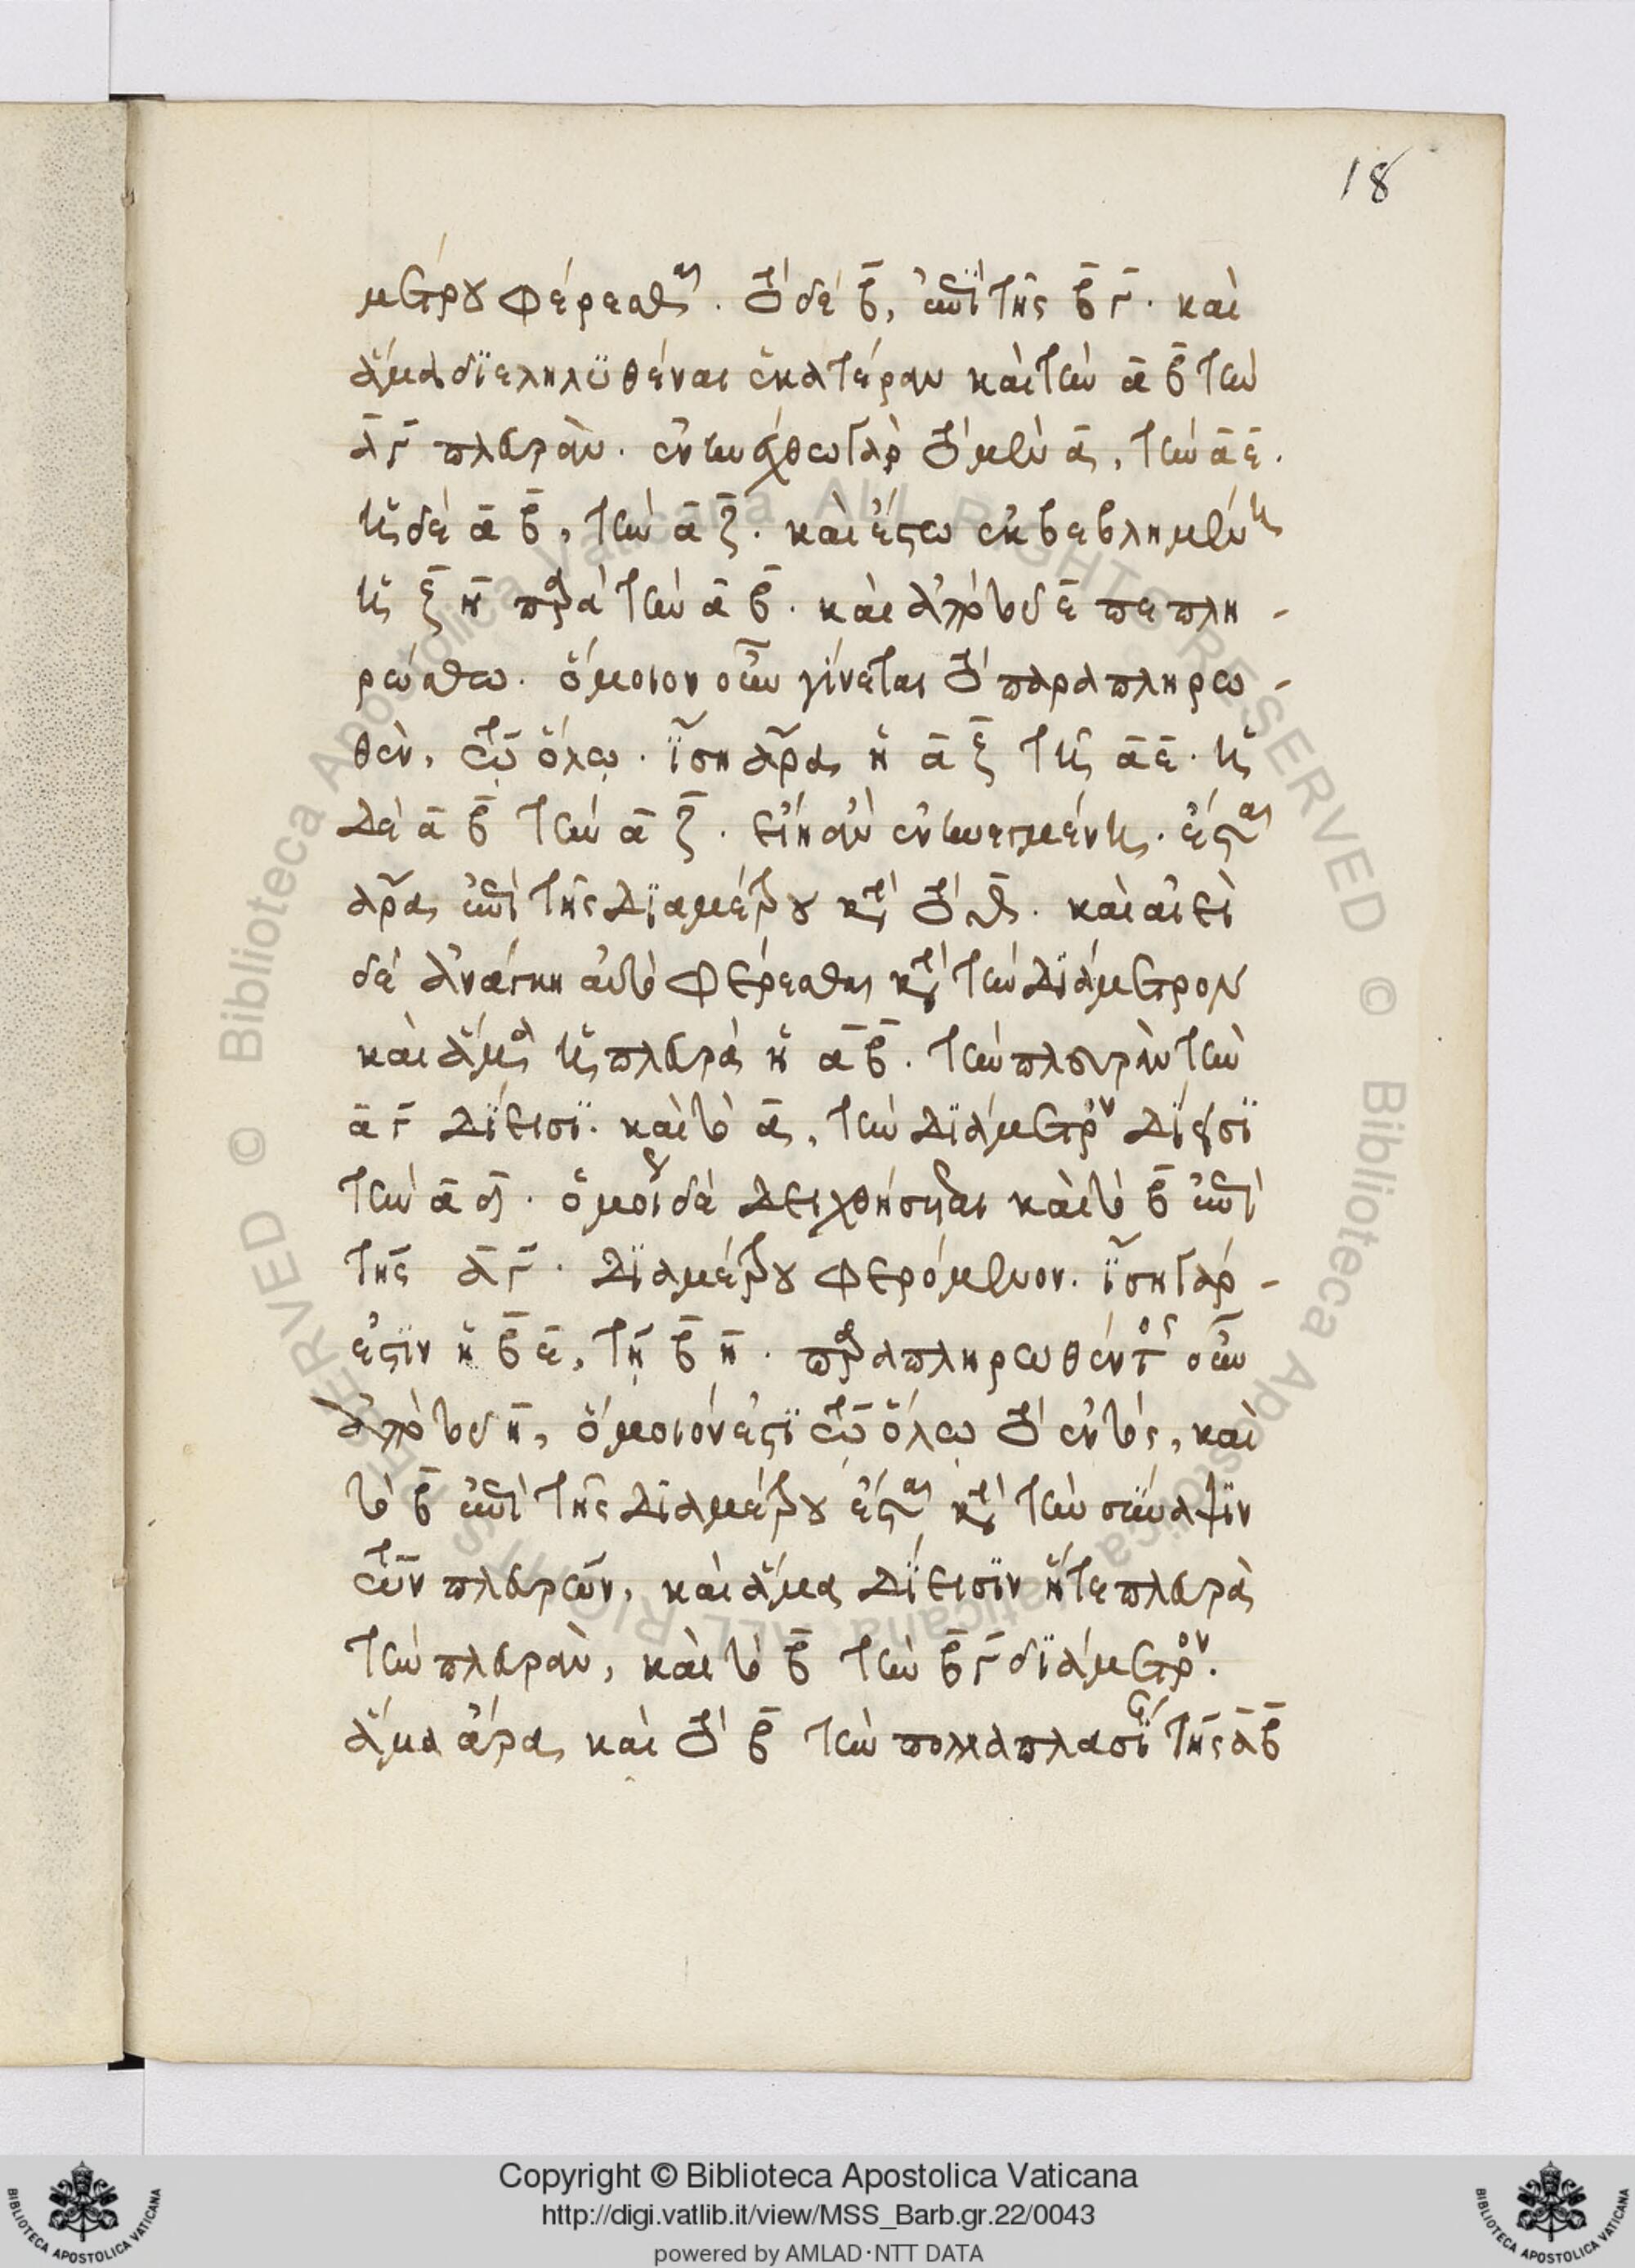 18
μέτρου φέρεσθαι. τὸ δὲ β̄, ἐπὶ τῆς β̄ γ̄. καὶ
ἅμα διεληλυθέναι ἑκατέραν καὶ τὴν ᾱ β̄ τὴν
ᾱ γ̄ πλευράν. ἐνηνέχθω γὰρ τὸ μὲν ᾱ, τὴν ᾱ ε̄.
ἡ δὲ ᾱ β̄, τὴν ᾱ ζ̄. καὶ ἔστω ἐκβεβλημένη
ἡ ξ̄ η̄ παρὰ τὴν ᾱ β̄. καὶ ἀπὸ τοῦ ε̄ πεπλη-
ρώσθω. ὅμοιον οὖν γίνεται τὸ παραπληρω-
θέν, τῷ ὅλῳ. ἴση ἄρα ἡ ᾱ ξ̄ τῇ ᾱ ε̄. ἡ
δὲ ᾱ β̄ τὴν ᾱ ζ̄. εἴη ἂν ἐνηνεγμένη. ἔσται
ἄρα ἐπὶ τῆς διαμέτρου κατὰ τὸ θ̄. καὶ αἰεὶ
δὲ ἀνάγκη αὐτὸ φέρεσθαι κατὰ τὴν διάμετρον
καὶ ἅμα ἡ πλευρὰ ἡ ᾱ β̄. τὴν πλευρὰν τὴν
ᾱ γ̄ δίεισι. καὶ τὸ ᾱ, τὴν διάμετρον δίεισι
τὴν ᾱ δ̄. ὁμοίως δὲ δειχθήσεται καὶ τὸ β̄ ἐπὶ
τῆς ᾱ γ̄. διαμέτρου φερόμενον. ἴση γάρ -
ἐστιν ἡ β̄ ε̄, τῇ β̄ η̄. παραπληρωθέντος οὖν
ἀπὸ τοῦ η̄, ὅμοιόν ἐστι τῷ ὅλῳ τὸ ἐντός, καὶ
τὸ β̄ ἐπὶ τῆς διαμέτρου ἔσται κατὰ τὴν σύναψιν
τῶν πλευρῶν, καὶ ἅμα δίεισιν ἥτε πλευρὰ
τὴν πλευράν, καὶ τὸ β̄ τὴν β̄ γ̄ διάμετρον.
ἅμα ἄρα καὶ τὸ β̄ τὴν πολλαπλασί τῆς ᾱ β̄
Copyright © Biblioteca Apostolica Vaticana
http://digi.vatlib.it/view/MSS_Barb.gr.22/0043
powered by AMLAD·NTT DATA